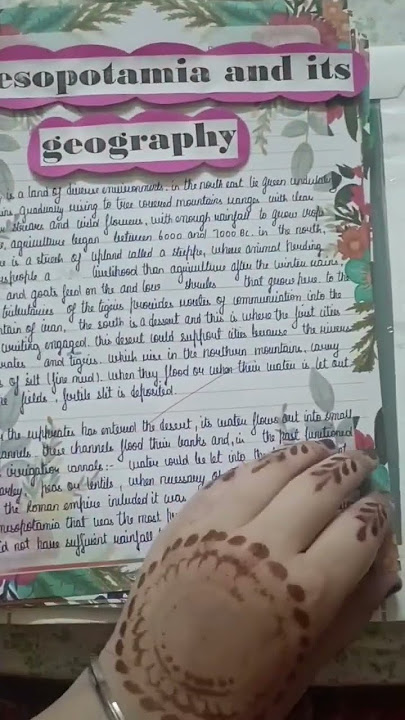 esopotamia and its
geography
is a land of diverse environments. in the north east lie green undulating
ins, gradually rising to tree covered mountains ranges with clear
and wild flowers, with enough rainfall to grow crops
e, agriculture began between 6000 and 7000 BC. in the north,
e is a stretch of upland called a steppe, where animal herding
people a livelihood than agriculture after the winter rains
and goats feed on the and low shrubs that grows here to the
of the tigris provides of communication into the
ntain of iran, the south is a dessert and this is where the first cities
writing engaged. this desert could support cities because the rivers
rates and tigris. which rise in the northern mountains, carry
s of salt (fine mud). when they flood or when their water is let out
e fields, fertile slit is deposited.
the has entered the desert, its water flows out into small
annels these channels flood their banks and, in the past functioned
irrigation cannals:- water could be let into the of
arley, peas or lentils, when necessary of
the roman empire included it was
mesopotamia that was the most
id not have sufficient rainfall